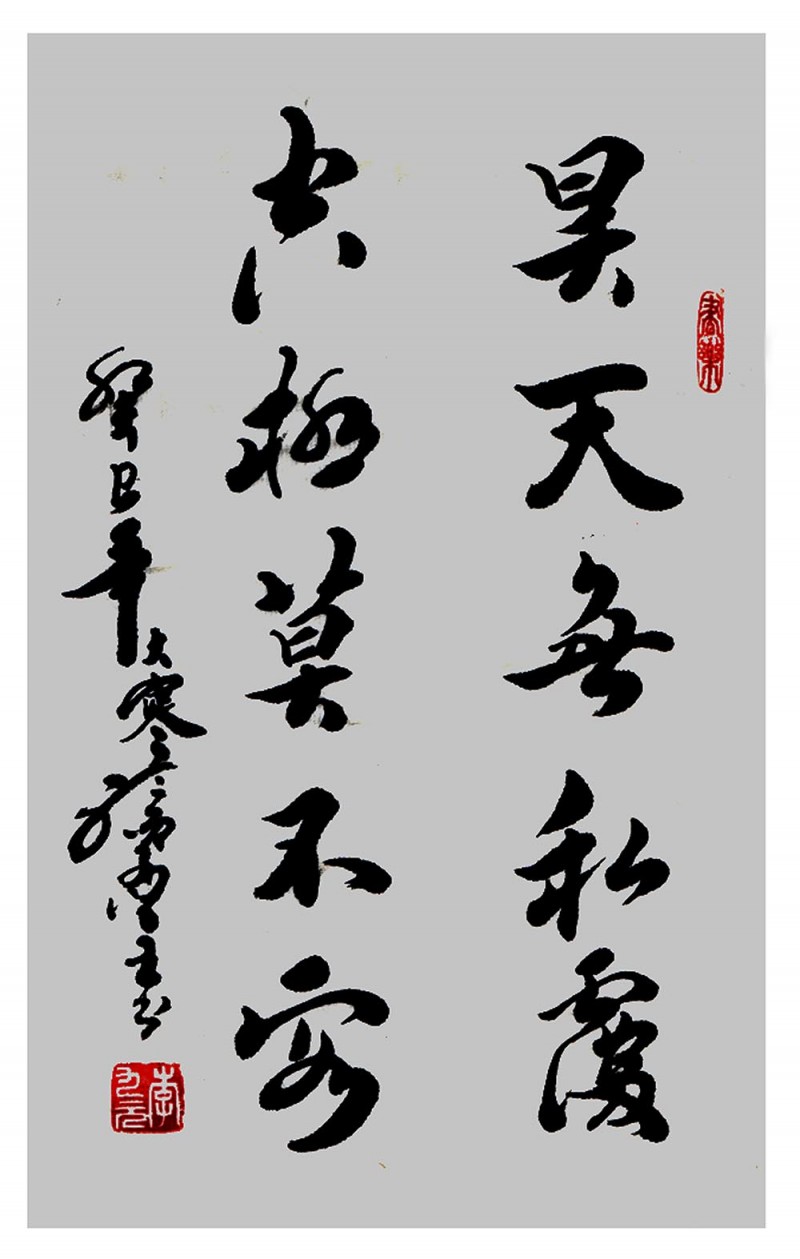 昊天無私覆
六極莫不容
癸巳年大寒